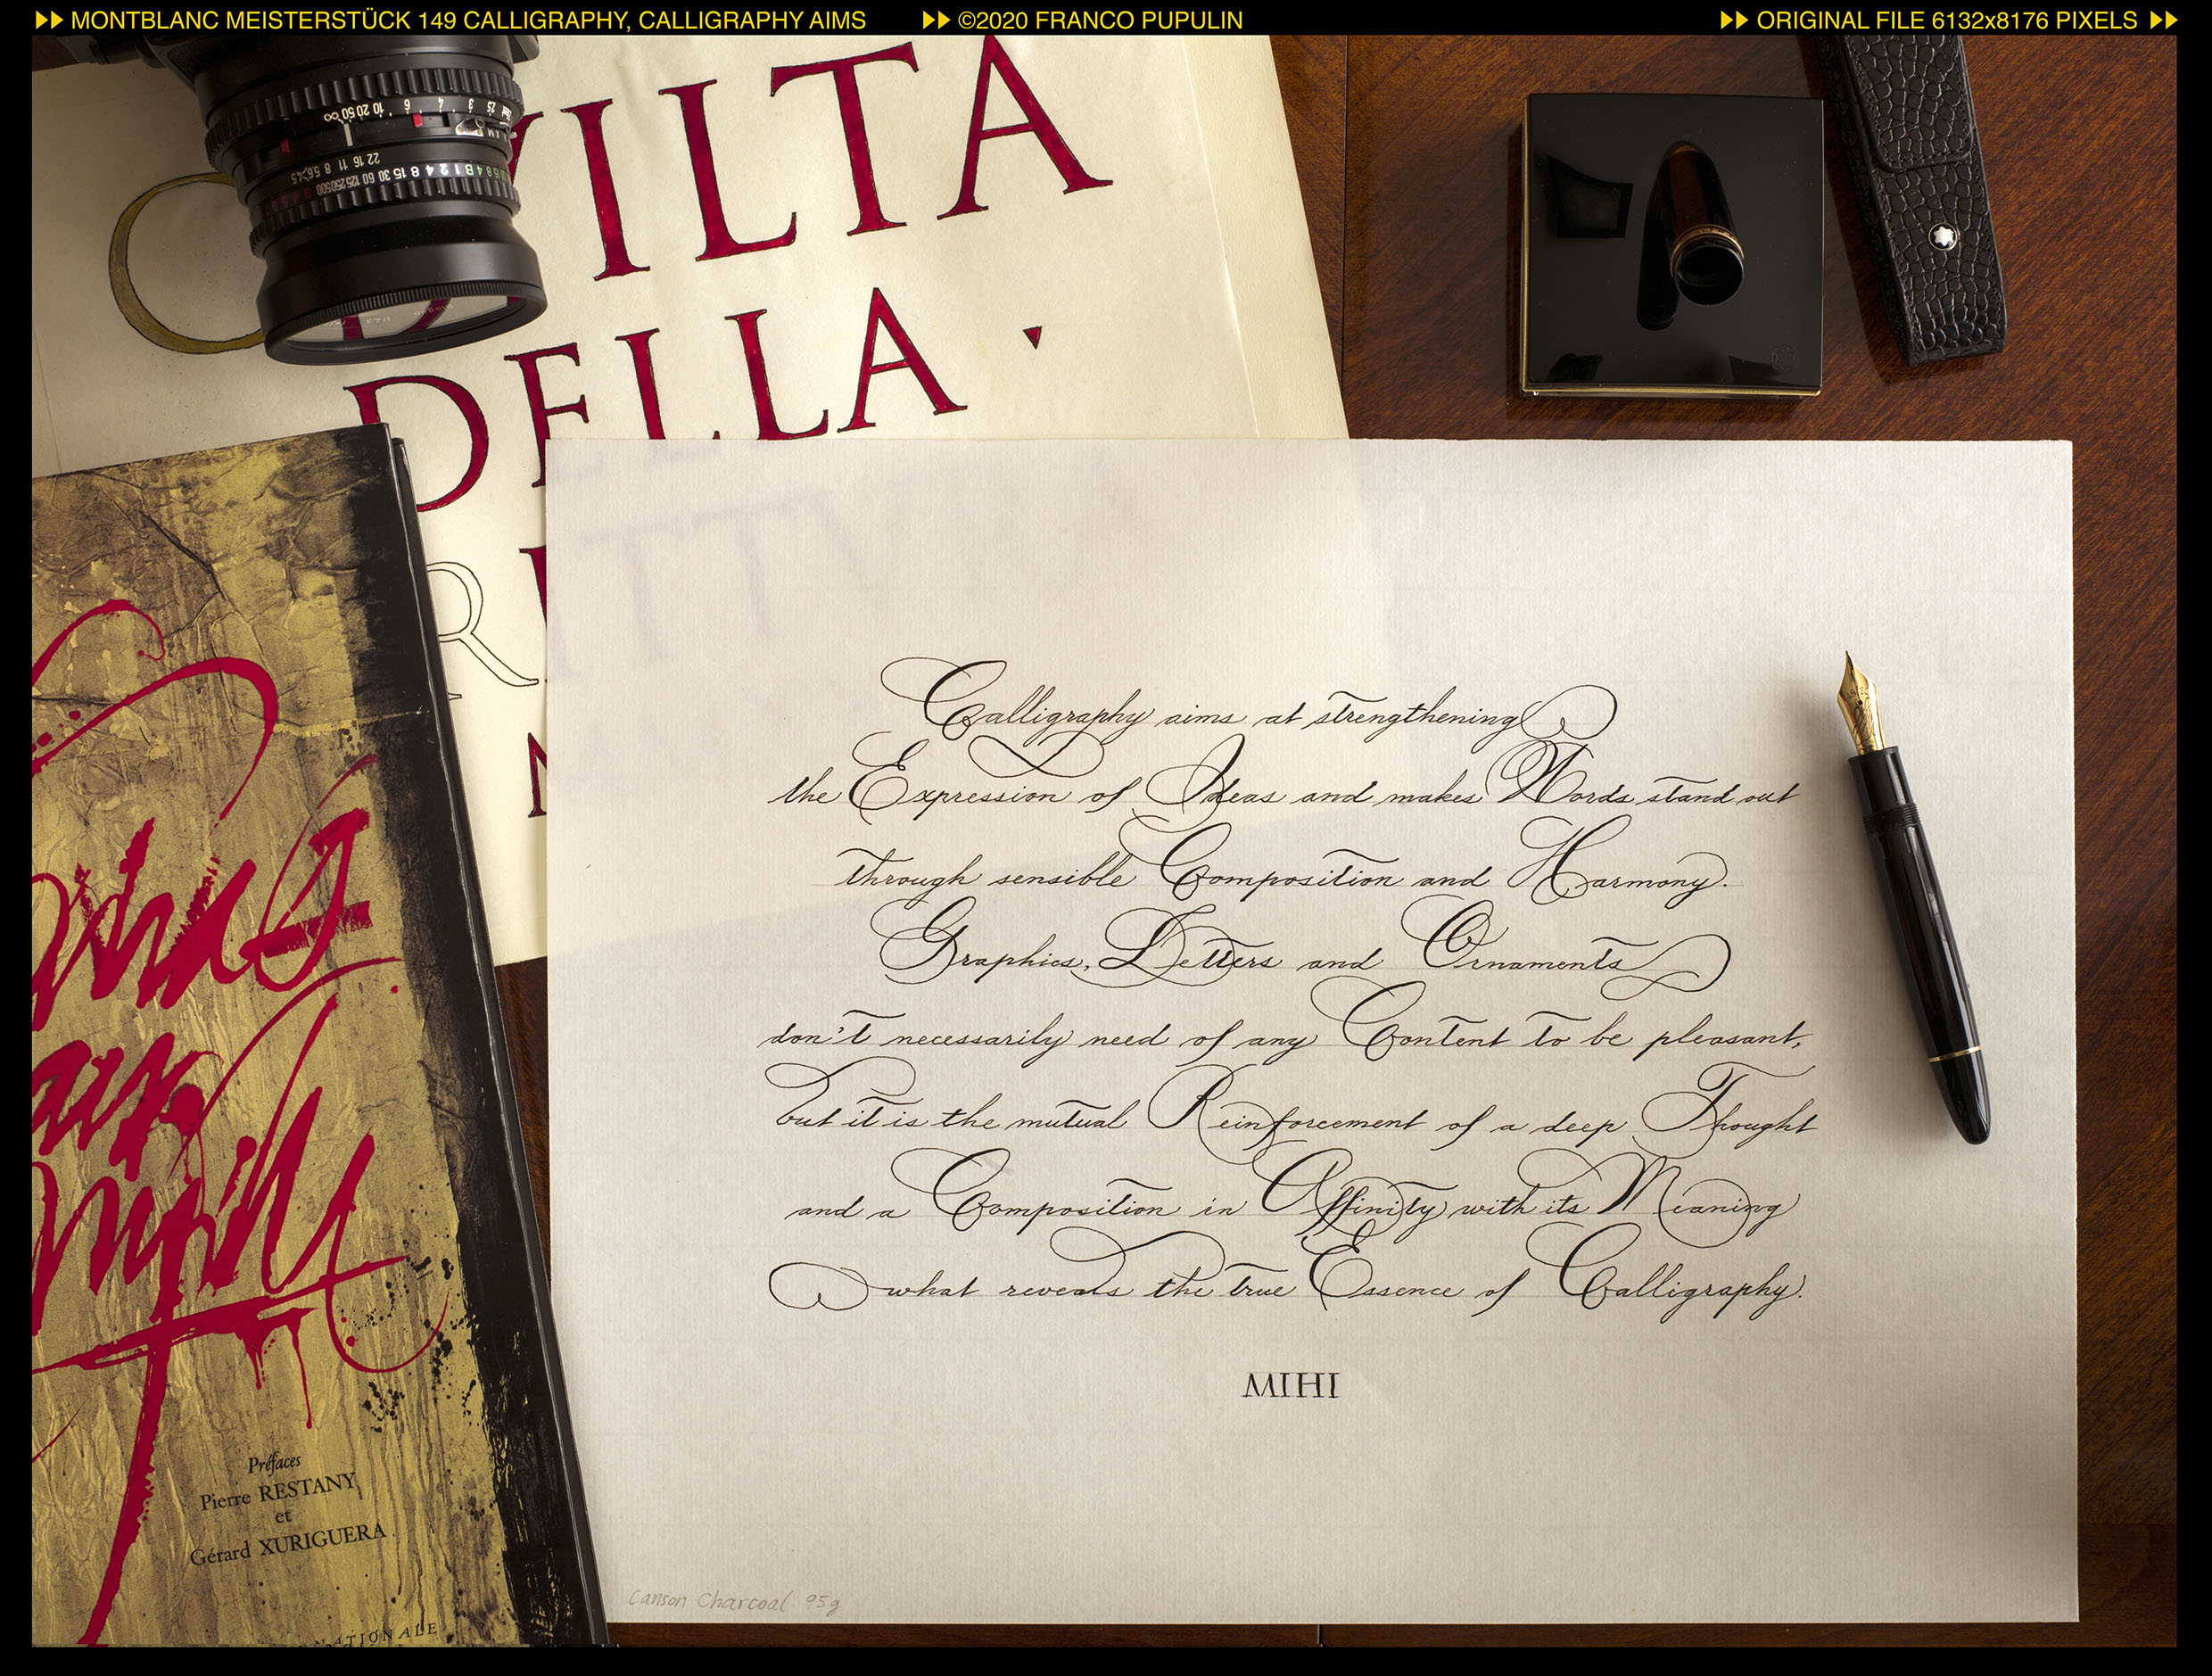 MONTBLANC MEISTERSTÜCK 149 CALLIGRAPHY, CALLIGRAPHY AIMS
©2020 FRANCO PUPULIN
ORIGINAL FILE 6132x8176 PIXELS
VILTA
DELLA
R
Calligraphy aims at strengthening
the Expression of Ideas and makes Words stand out
through sensible Composition and Harmony.
Graphics, Letters and Ornaments
don't necessarily need of any Content to be pleasant,
but it is the mutual Reinforcement of a deep Thought
and a Composition in Affinity with its Meaning
what reveals the true Essence of Calligraphy.
MIHI
Canson Charcoal 95g
Préfaces
Pierre RESTANY
et
Gérard XURIGUERA